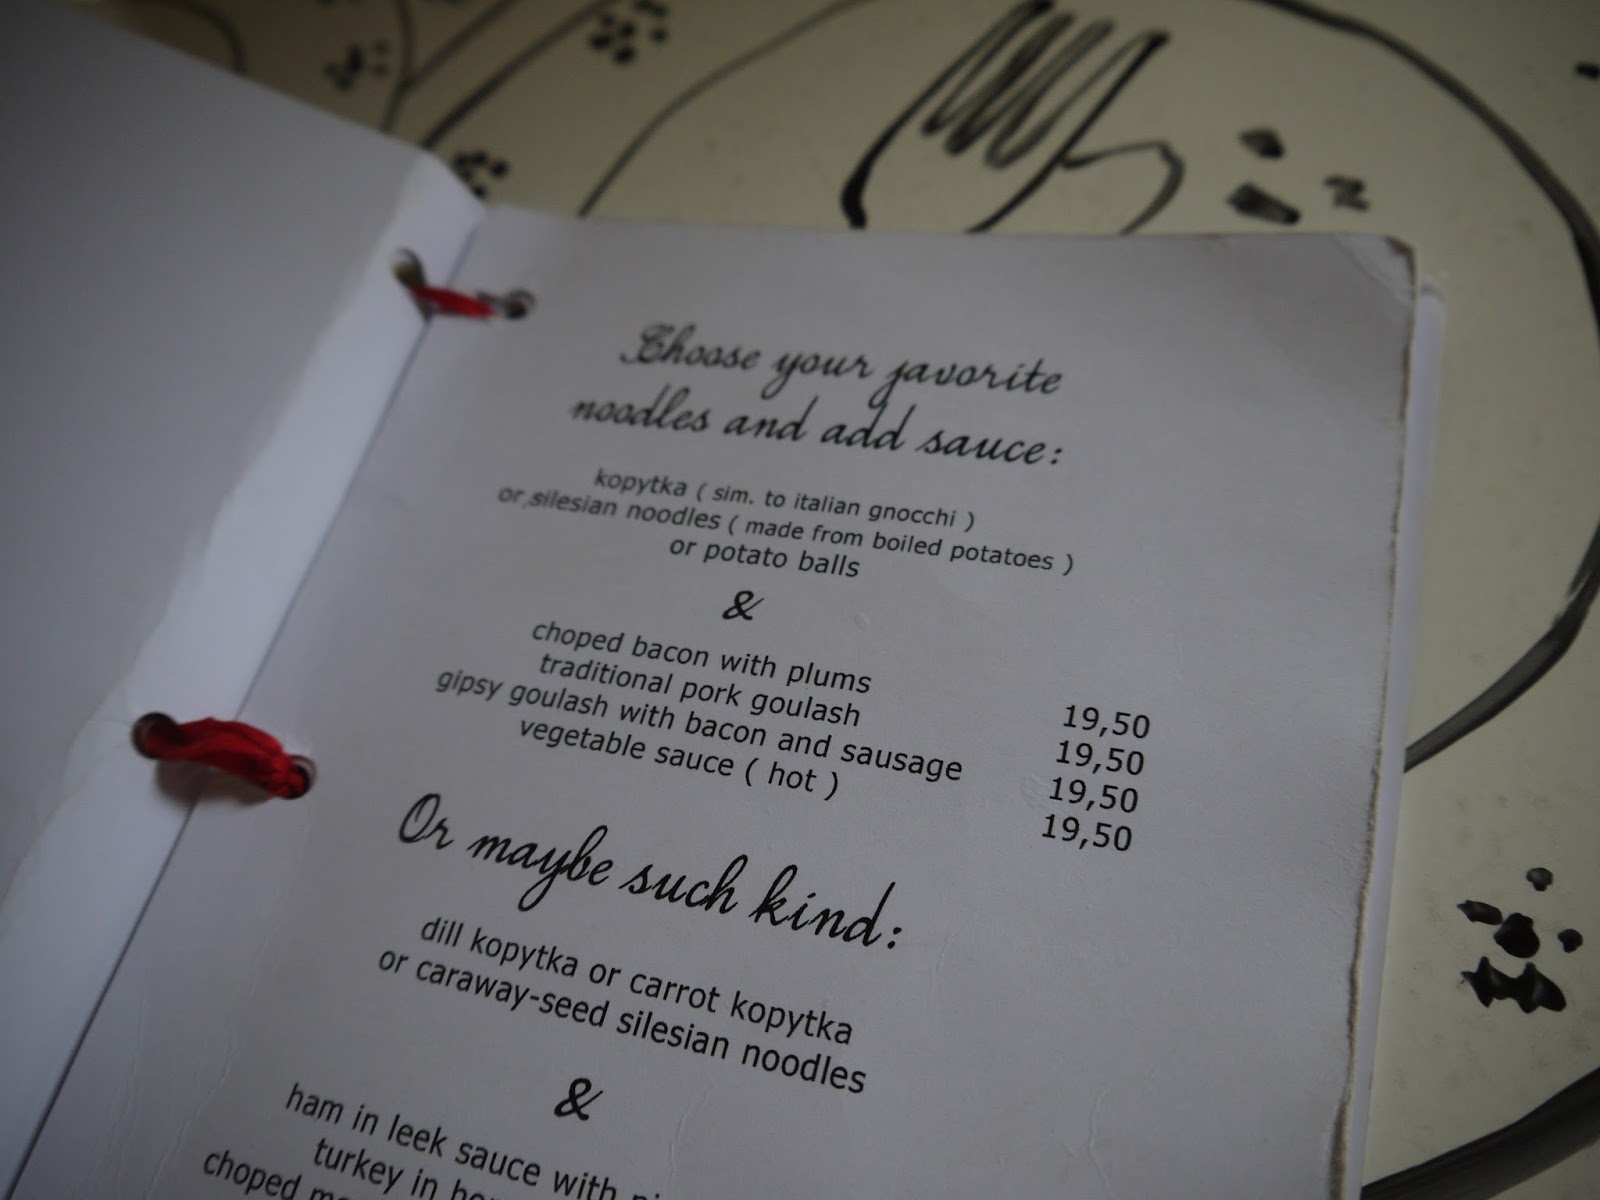 Choose your favorite
noodles and add sauce:
kopytka ( sim. to italian gnocchi )
or silesian noodles ( made from boiled potatoes )
or potato balls
&
choped bacon with plums 19,50
traditional pork goulash 19,50
gipsy goulash with bacon and sausage 19,50
vegetable sauce ( hot ) 19,50
Or maybe such kind:
dill kopytka or carrot kopytka
or caraway-seed silesian noodles
&
ham in leek sauce with
turkey in
choped